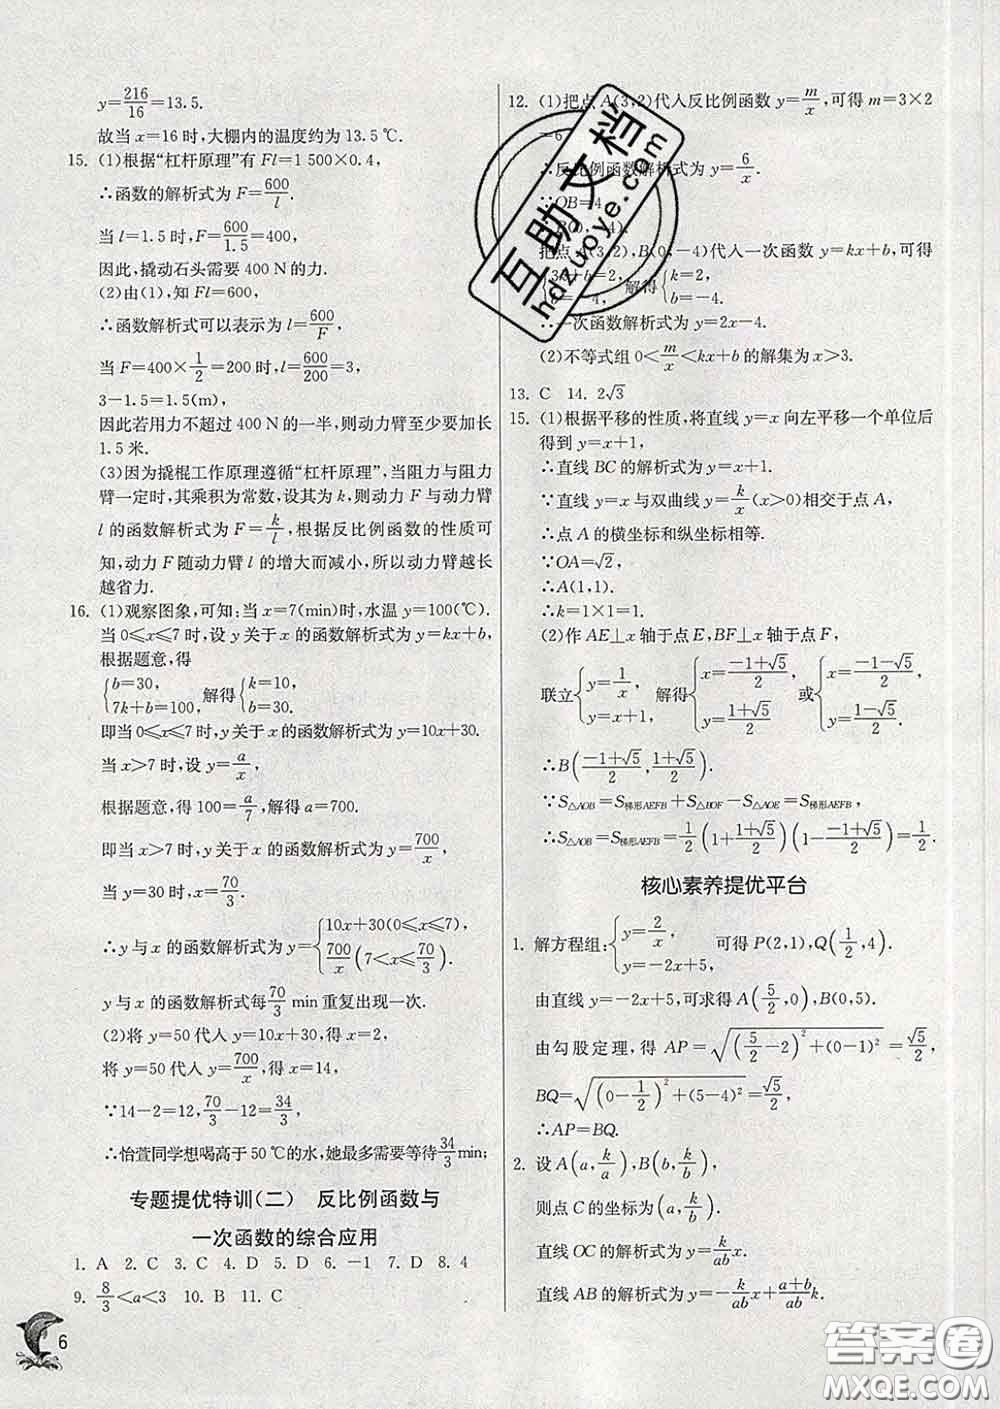 y=216/16=13.5.
故当 x=16 时,大棚内的温度约为 13.5 ℃.
15. (1)根据“杠杆原理”有 Fl=1 500×0.4,
∴函数的解析式为 F=600/l.
当 l=1.5 时,F=600/1.5=400,
因此,撬动石头需要 400 N的力.
(2)由(1),知 Fl=600,
∴函数解析式可以表示为 l=600/F,
当 F=400×1/2=200 时,l=600/200=3,
3-1.5=1.5(m),
因此若用力不超过 400 N 的一半,则动力臂至少要加长
1.5 米.
(3)因为撬棍工作原理遵循“杠杆原理”,当阻力与阻力
臂一定时,其乘积为常数,设其为 k,则动力 F 与动力臂
l 的函数解析式为 F=k/l,根据反比例函数的性质可
知,动力 F 随动力臂 l 的增大而减小,所以动力臂越长
越省力.
16. (1)观察图象,可知:当 x=7(min)时,水温 y=100(℃).
当 0≤x≤7 时,设 y 关于 x 的函数解析式为 y=kx+b,
根据题意,得
{b=30, 7k+b=100, 解得{k=10, b=30.
即当 0≤x≤7 时,y 关于 x 的函数解析式为 y=10x+30.
当 x>7 时,设 y=a/x,
根据题意,得 100=a/7,解得 a=700.
即当 x>7 时,y 关于 x 的函数解析式为 y=700/x,
当 y=30 时,x=70/3.
∴y 与 x 的函数解析式为 y={10x+30(0≤x≤7), 700/x(7<x≤70/3).
y 与 x 的函数解析式每70/3 min 重复出现一次.
(2)将 y=50 代人 y=10x+30,得 x=2,
将 y=50 代人 y=700/x,得 x=14,
∵14-2=12,70/3-12=34/3,
∴怡萱同学想喝高于 50 ℃的水,她最多需要等待34/3min;
专题提优特训(二) 反比例函数与
一次函数的综合应用
1. A 2. C 3. C 4. D 5. D 6. -1 7. D 8. 4
9. 8/3<a<3 10. B 11. C
6
12. (1)把点 A(3,2)代人反比例函数 y=m/x,可得 m=3×2
=6
∴反比例函数解析式为 y=6/x.
∵OB=4
把点 A(3,2),B(0,-4)代人一次函数 y=kx+b,可得
解得{k=2, b=-4.
∴一次函数解析式为 y=2x-4.
(2)不等式组 0<m/x<kx+b 的解集为 x>3.
13. C 14. 2√3
15. (1)根据平移的性质,将直线 y=x 向左平移一个单位后
得到 y=x+1,
∴直线 BC 的解析式为 y=x+1.
∵直线 y=x 与双曲线 y=k/x(x>0)相交于点 A,
∴点 A 的横坐标和纵坐标相等.
∵OA=√2,
∴A(1,1).
∴k=1×1=1.
(2)作 AE⊥x 轴于点 E,BF⊥x 轴于点 F,
联立{y=1/x, y=x+1, 解得{x=(-1+√5)/2, y=(1+√5)/2 或{x=(-1-√5)/2, y=(1-√5)/2.
∴B((-1+√5)/2,(1+√5)/2).
∵S△AOB=S梯形AEFB+S△BOF-S△AOE=S梯形AEFB,
∴S△AOB=S梯形AEFB=1/2(1+(1+√5)/2)(1-(-1+√5)/2)=1/2.
核心素养提优平台
1. 解方程组:{y=2/x, y=-2x+5, 可得 P(2,1),Q(1/2,4).
由直线 y=-2x+5,可求得 A(5/2,0),B(0,5).
由勾股定理,得 AP=√((5/2-2)²+(0-1)²)=√5/2,
BQ=√((0-1/2)²+(5-4)²)=√5/2,
∴AP=BQ.
2. 设 A(a,k/a),B(b,k/b),
则点 C 的坐标为(a,k/b).
直线 OC 的解析式为 y=k/ab x.
直线 AB 的解析式为 y=-k/ab x+(a+b)/ab k,
互助文档
hdzuoye.com
答案圈
MXQE.COM